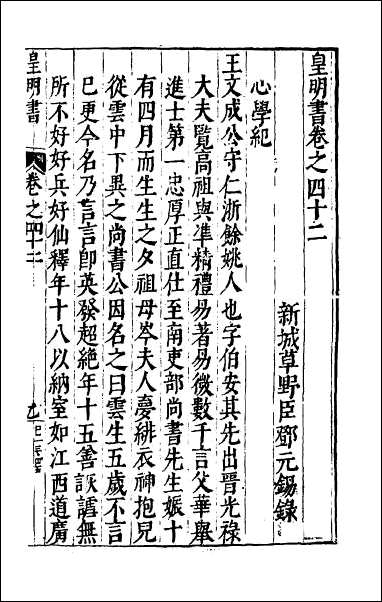 皇明書卷之四十二
新城草野臣鄧元錫錄
心學紀
王文成公守仁浙餘姚人也字伯安其先出晉光祿
大夫覽高祖與準精禮易著易微數千言父華舉
進士第一忠厚正直仕至南吏部尚書先生娠十
有四月而生生之夕祖母岑夫人夢緋衣神抱兒
從雲中下異之尚書公因名之曰雲生五歲不言
已更今名乃言言卽英發超絕年十五善詼謔無
所不好好兵好仙釋年十八以納室如江西道廣
皇明書
卷之四十二